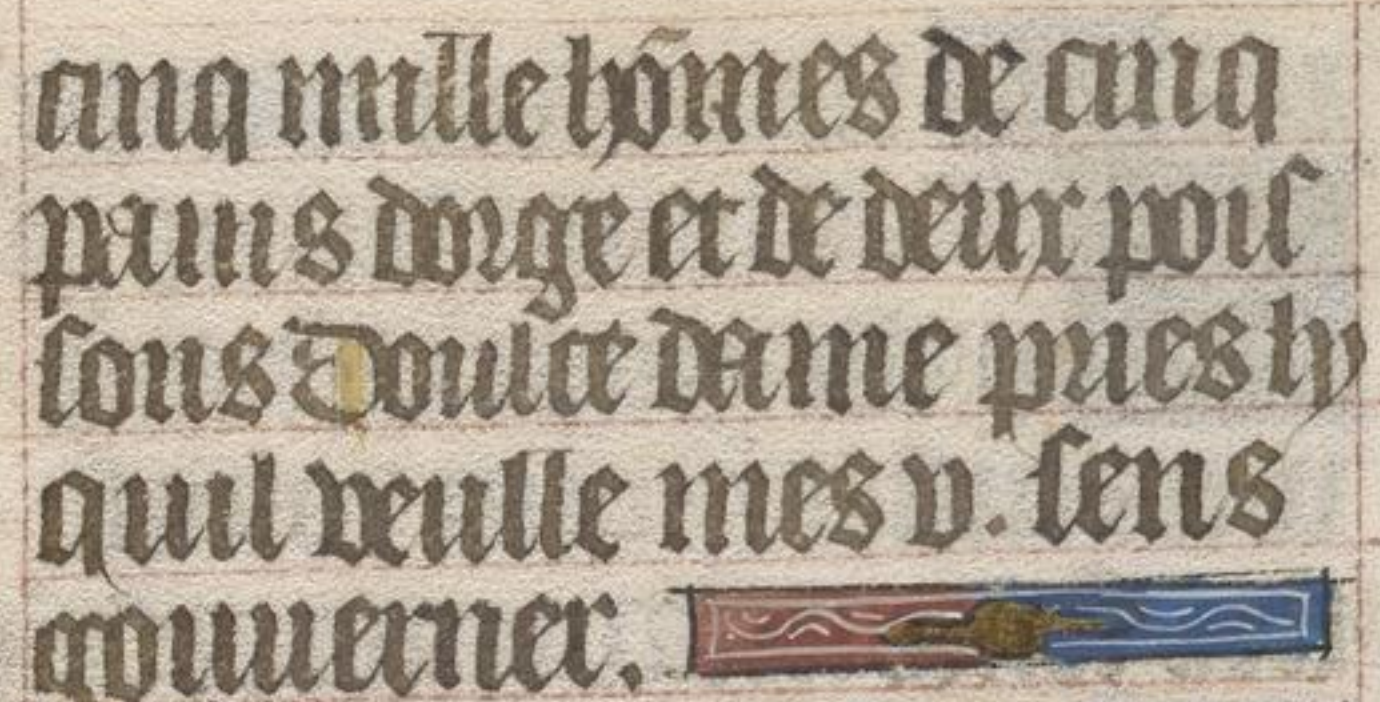 cinq mille hõmes de cinq
pains dorge et de deux poiſ
ſons Doulce dame pries ly
quil veulle mes v. ſens
gouuerner.